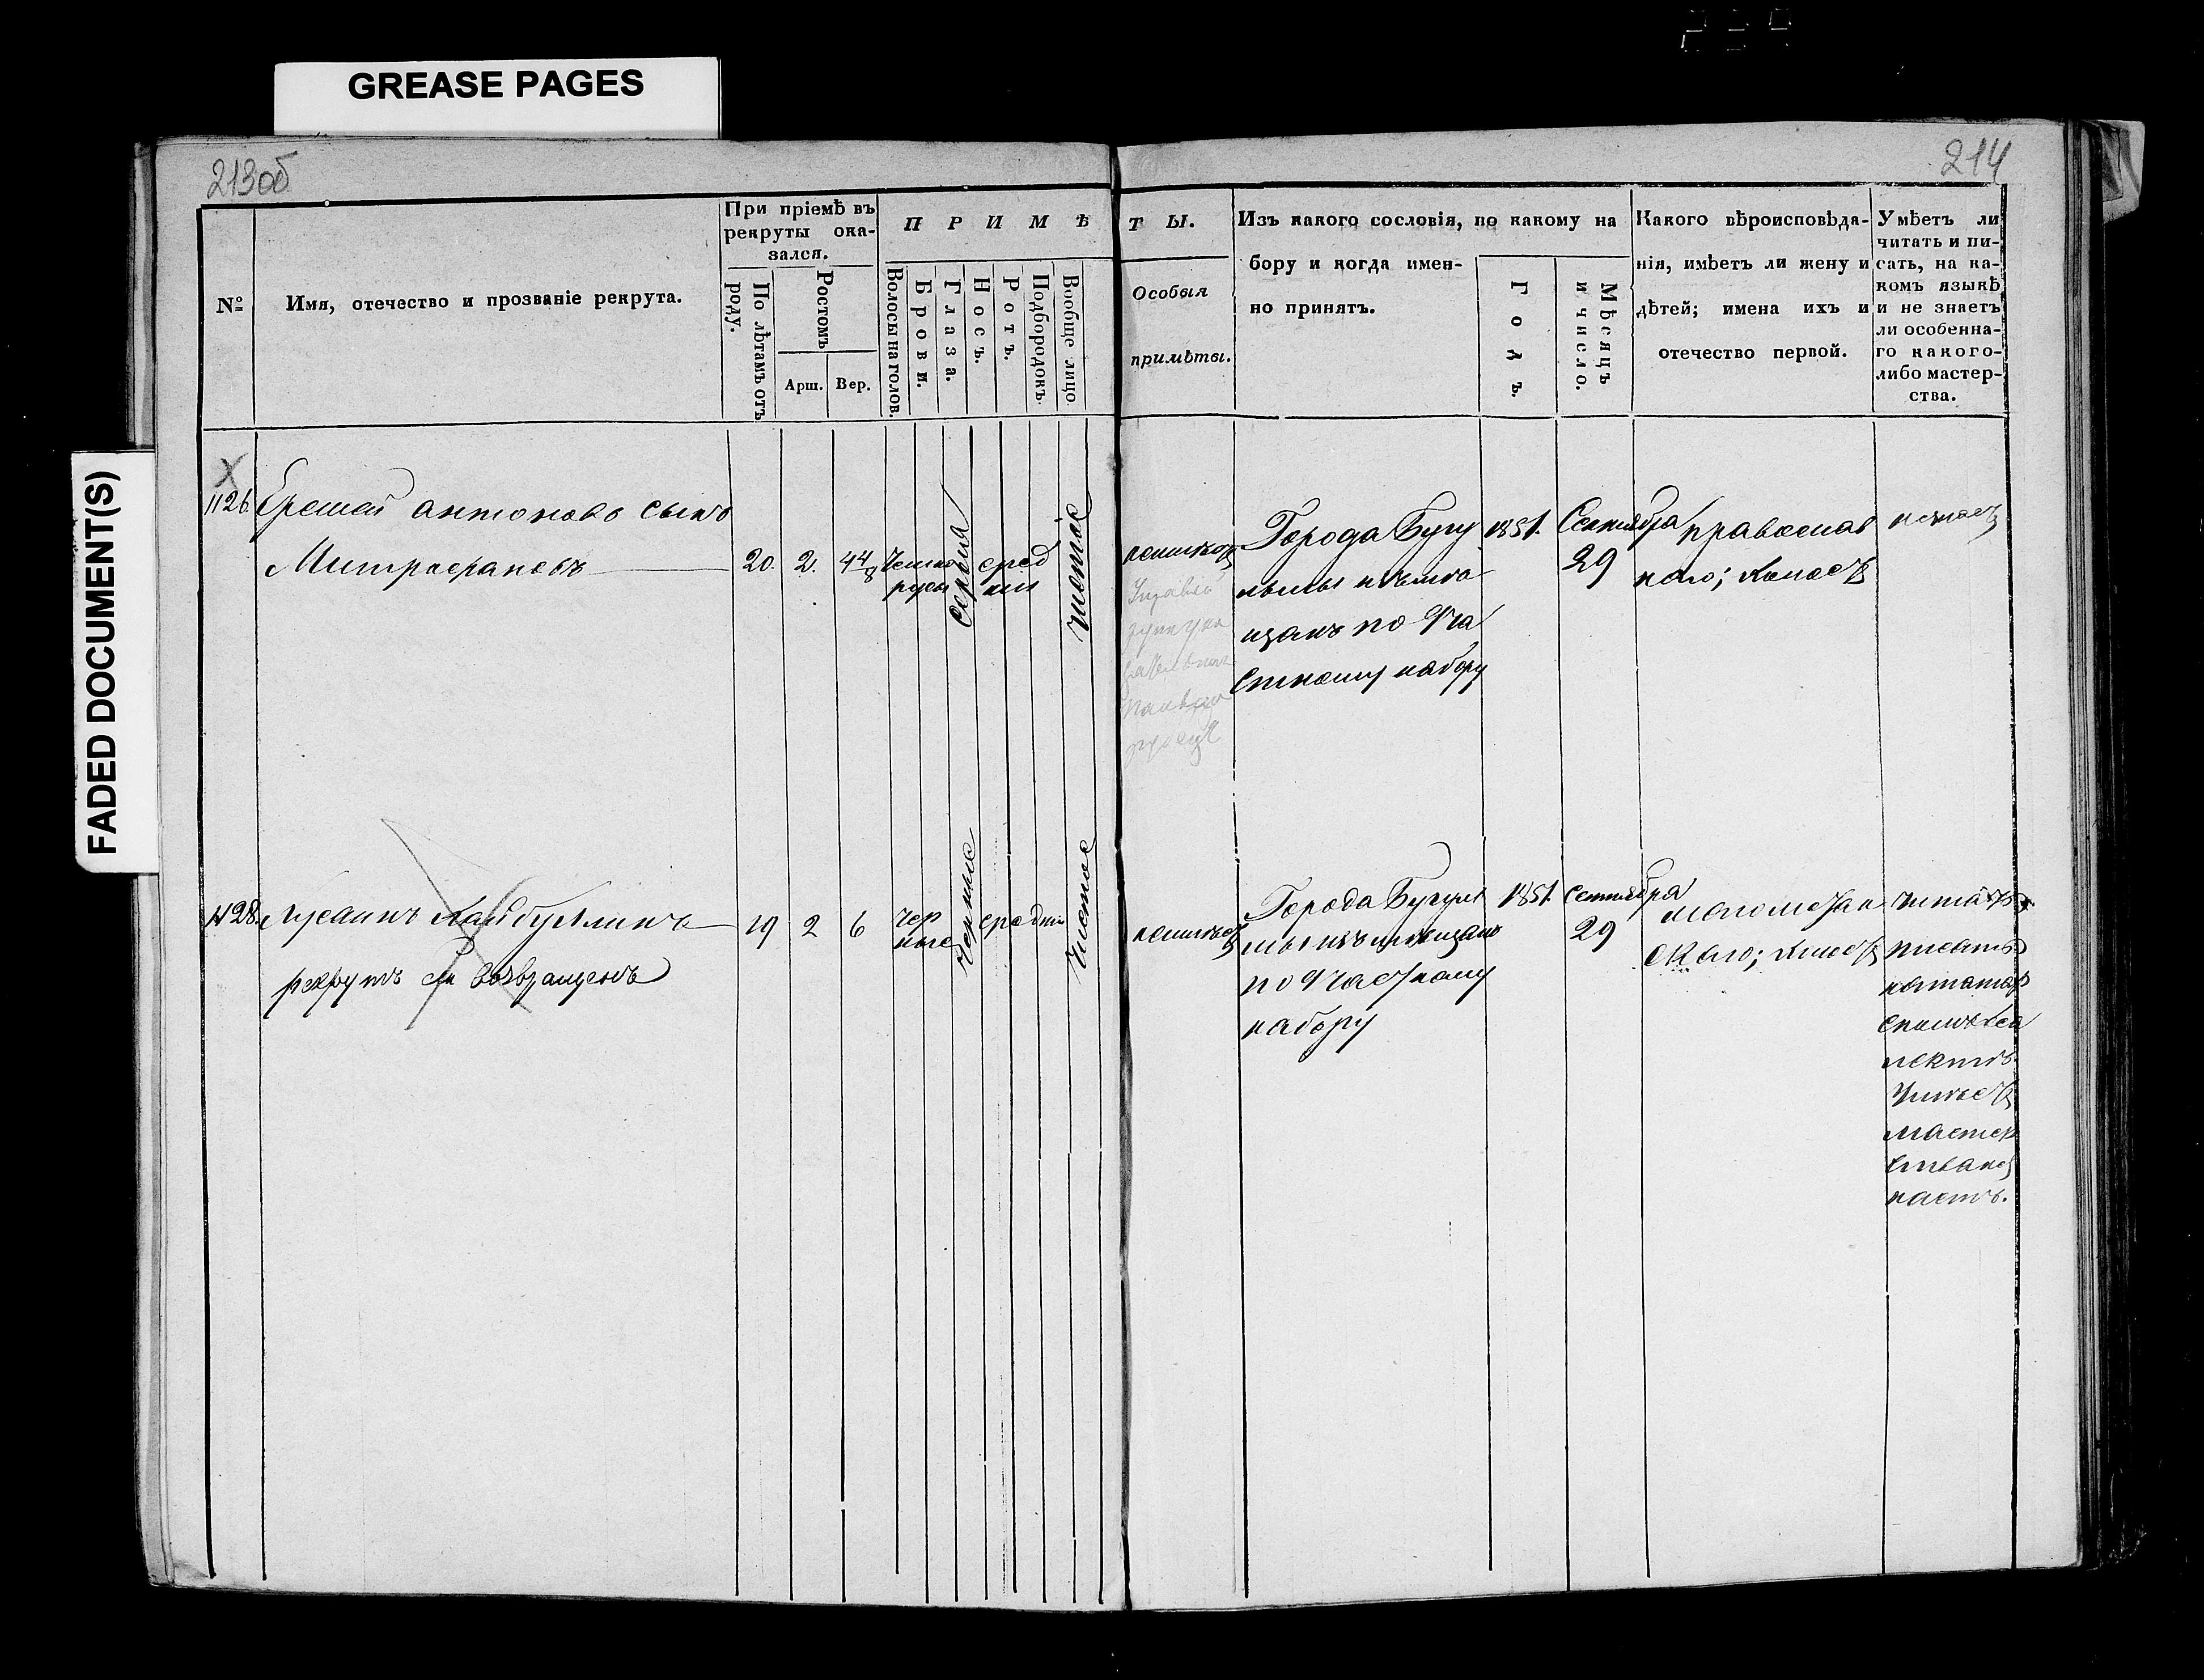 GREASE PAGES
FADED DOCUMENT(S)
213об
214
№
Имя, отечество и прозваніе рекрута.
При пріемѣ въ
рекруты ока-
зался.
По лѣтамъ отъ
роду.
Ростомъ
Арш.
Вер.
ПРИМѢ
Волосы на голов.
Брови.
Глаза.
Носъ.
Ротъ.
Подбородокъ.
Вообще лицо.
ТЫ.
Особыя
примѣты.
Изъ какого сословія, по какому на
бору и когда имен-
но принятъ.
Годъ.
Мѣсяцъ
и число.
Какого вѣроисповѣда-
нія, имѣетъ ли жену и
дѣтей; имена ихъ и
отечество первой.
Умѣетъ ли
читать и пи-
сать, на ка-
комъ языкѣ
и не знаетъ
ли особенна-
го какого-
либо мастер-
ства.
1126.
Еремей Антоновъ сынъ
Митрофановъ
20.
2.
4 4/8
Темно
русы
серыя
сред
нія
чистое
неимѣетъ
Города Бугу
льмы изъ мѣ
щанъ по Ча
стному набору
1851.
Сентября
29
православ
наго; холостъ
незнаетъ
1128.
Хайбуллинъ
рекрутъ сей возвращенъ
19
2
6
чер
ные
черные
средній
чистое
неимѣетъ
Города Бугуль
мы изъ мѣщанъ
по Частному
набору
1851.
Сентября
29
магометан
скаго; холостъ
читать и
писать
на татар
скомъ діа
лектѣ
Умѣетъ
мастер
ства не з
наетъ.